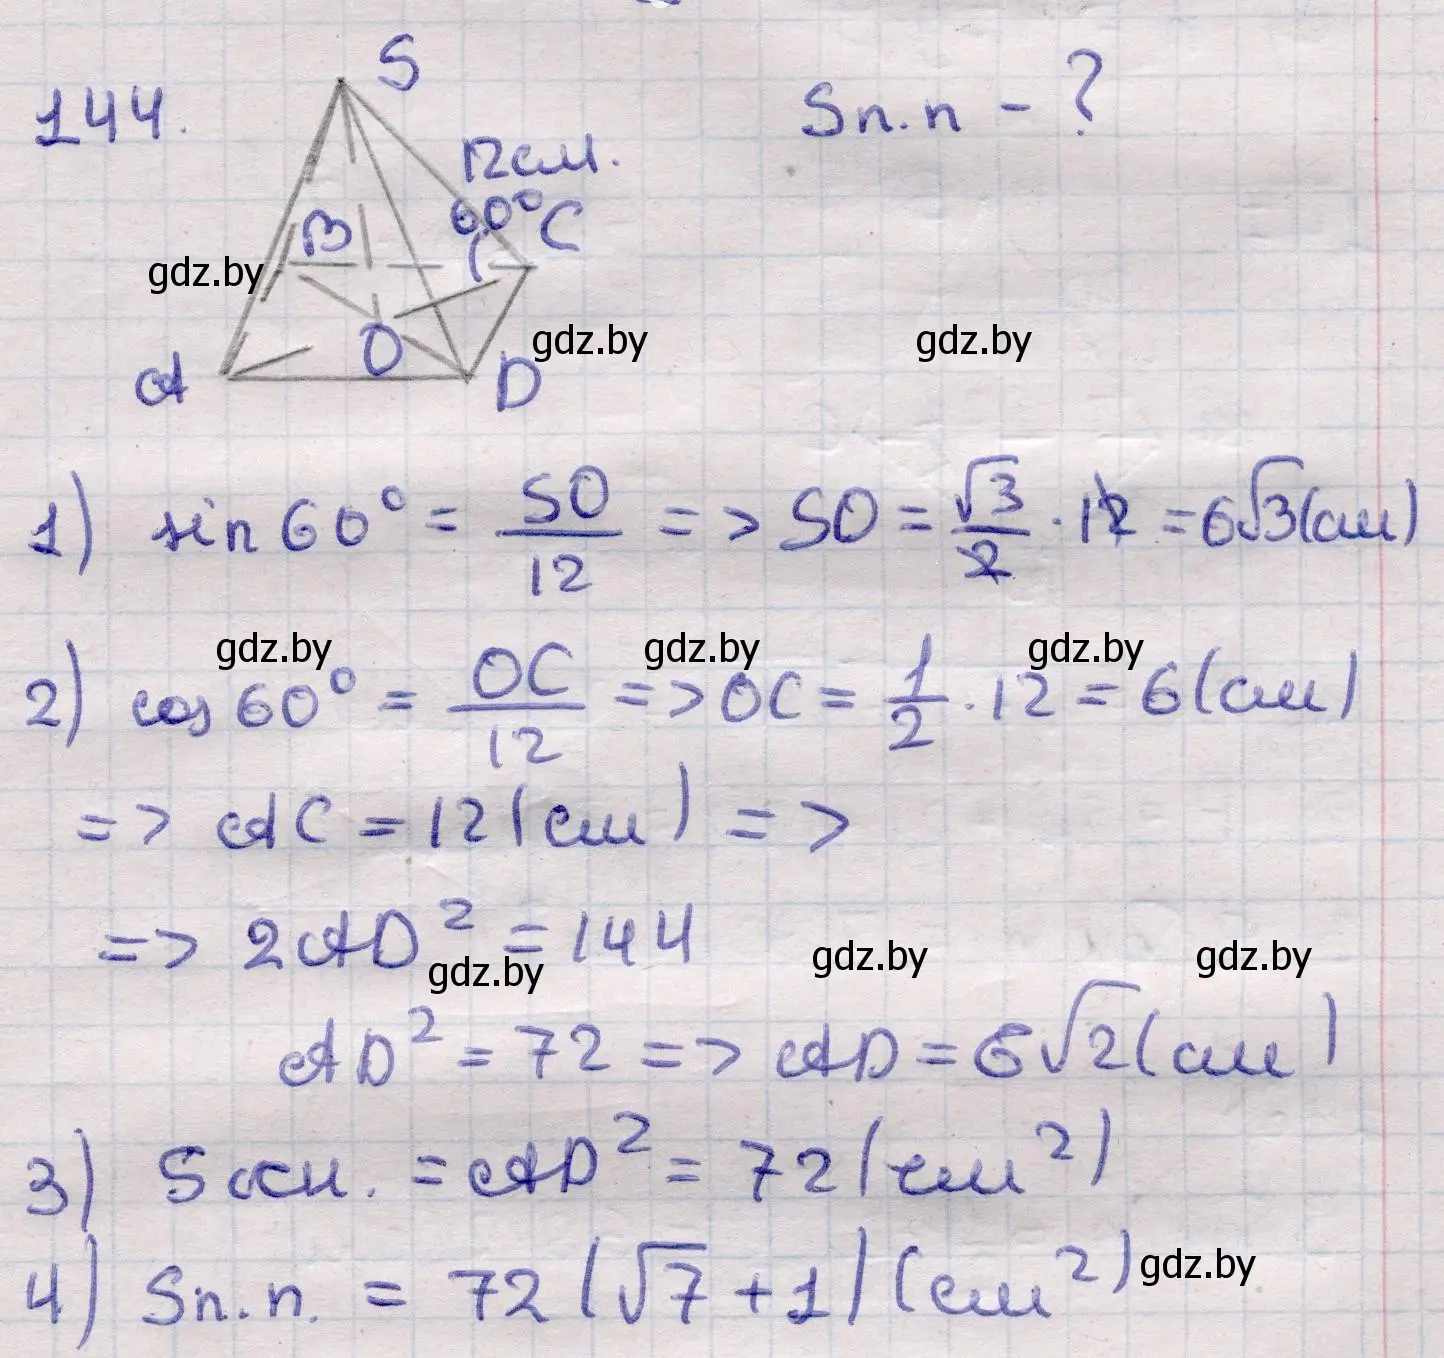 144.
S
Sп.п - ?
12см.
60°
B
C
gdz.by
gdz.by
gdz.by
A
O
D
1) sin 60° = SO/12 => SO = √3/2 · 12 = 6√3 (см)
gdz.by
gdz.by
gdz.by
2) cos 60° = OC/12 => OC = 1/2 · 12 = 6 (см)
=> AC = 12 (см) =>
=> 2AD² = 144
gdz.by
gdz.by
gdz.by
AD² = 72 => AD = 6√2 (см)
3) Sосн. = AD² = 72 (см²)
4) Sп.п. = 72 (√7 + 1) (см²)
gdz.by